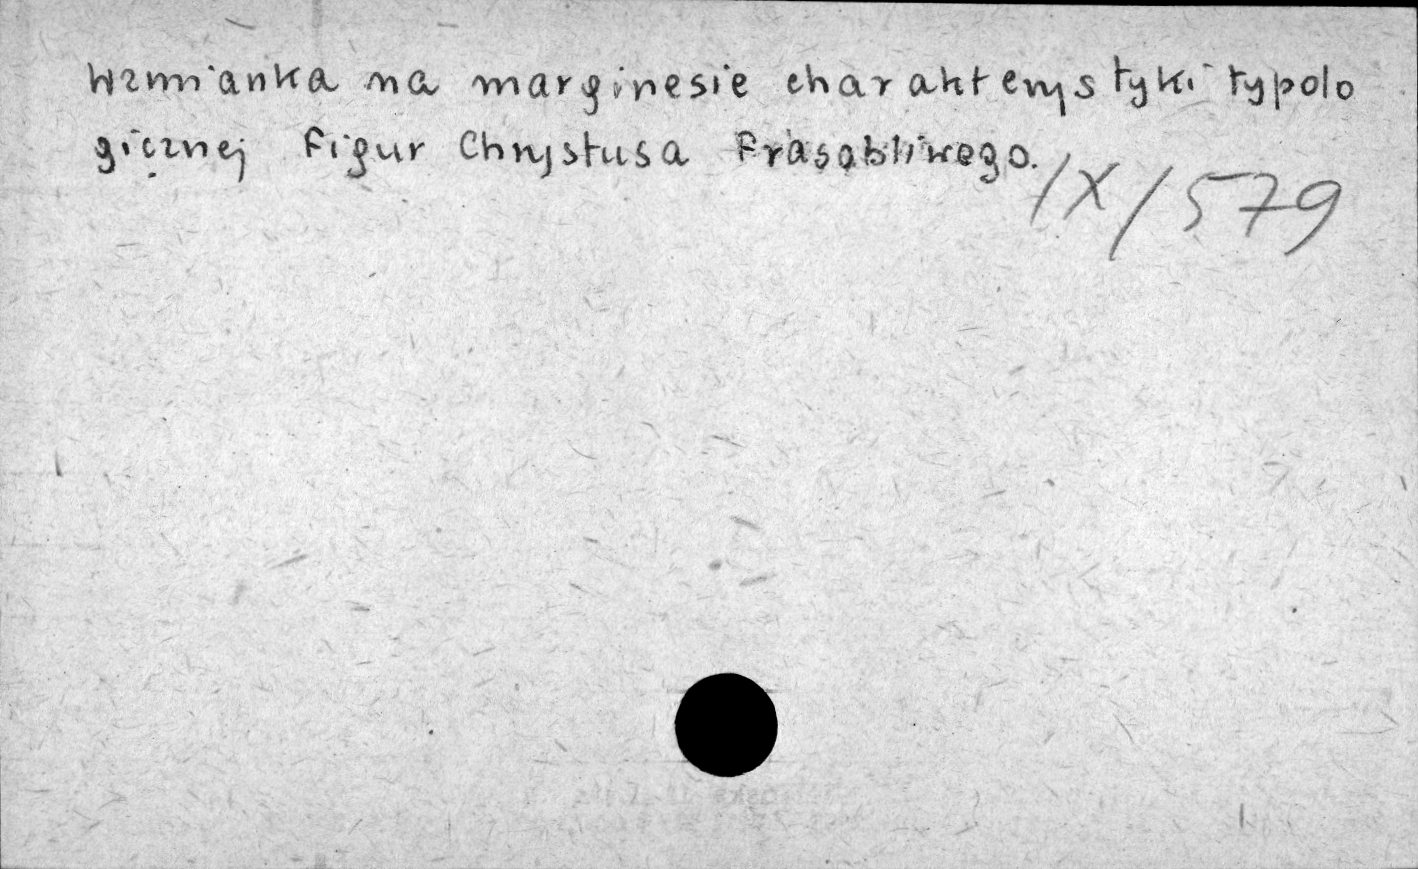 Wzmianka na marginesie charakterystyki typolo
gicznej figur Chrystusa Frasobliwego.
IX/579